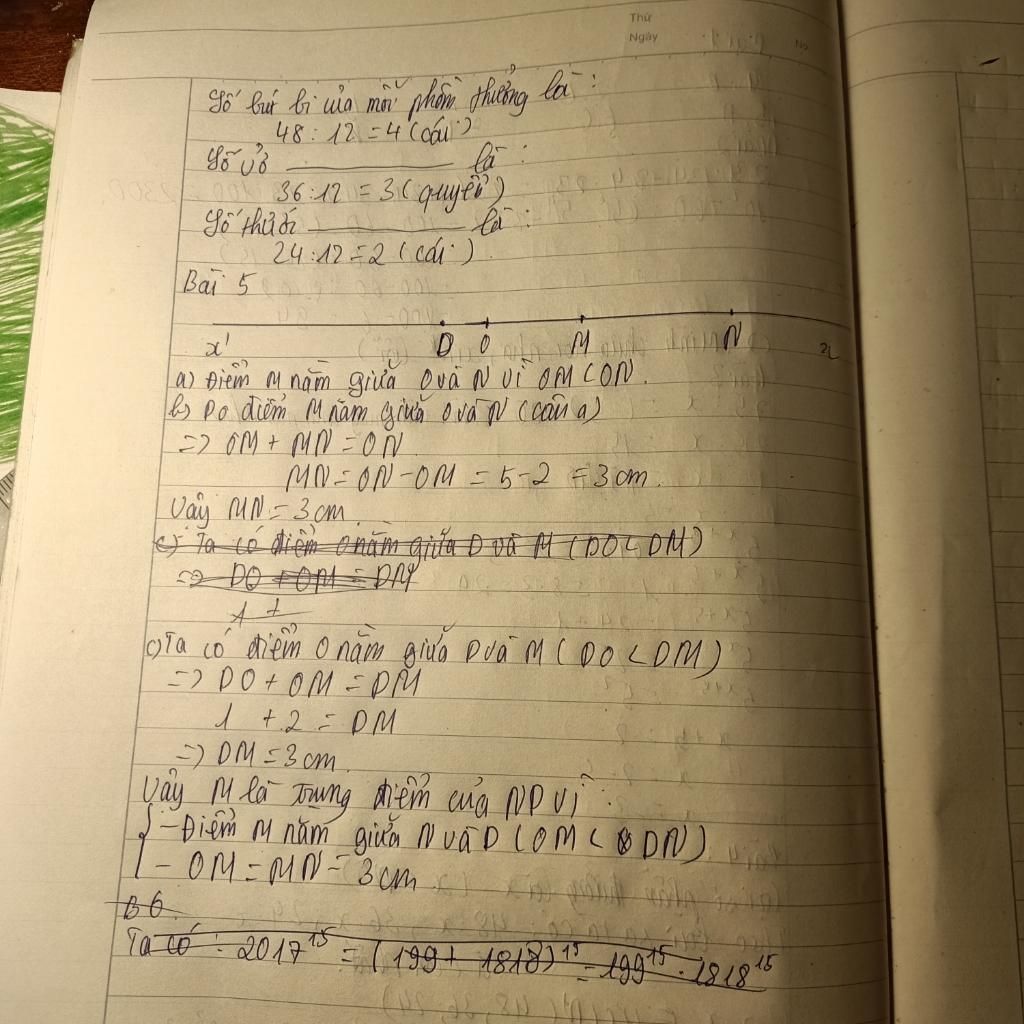 Thứ
Ngày
No.
Số bút bi của mỗi phần thưởng là :
48 : 12 = 4 (cái)
Số vở ———— là :
36 : 12 = 3 (quyển)
Số thước ———— là :
24 : 12 = 2 (cái)
Bài 5
x' D O M N x
a) Điểm M nằm giữa O và N vì OM < ON.
b) Do điểm M nằm giữa O và N (câu a)
=> OM + MN = ON
MN = ON - OM = 5 - 2 = 3 cm.
Vậy MN = 3 cm.
c) Ta có điểm O nằm giữa D và M (DO < DM)
=> DO + OM = DM
1 +
c) Ta có điểm O nằm giữa D và M (DO < DM)
=> DO + OM = DM
1 + 2 = DM
=> DM = 3 cm.
Vậy M là trung điểm của ND vì :
- Điểm M nằm giữa N và D (OM < DN)
- OM = MN = 3 cm.
B 6.
Ta có : 2017¹⁵ = (199 + 1818)¹⁵ = 199¹⁵ . 1818¹⁵